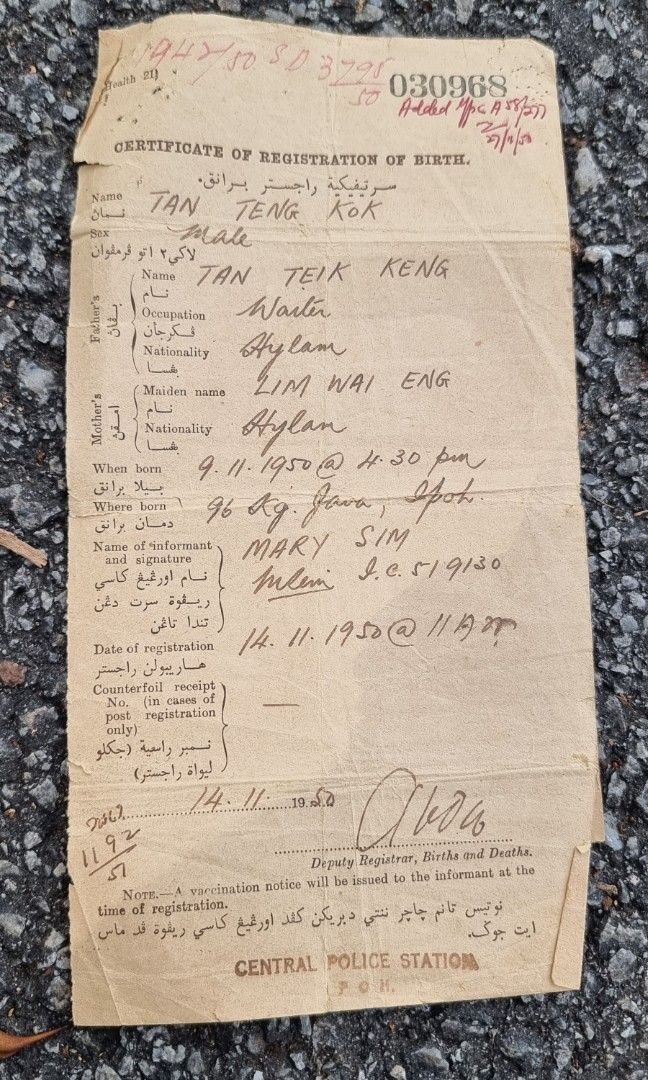 1942/50 SD 3795/50
Health 21)
030968
Added A 58/277
27/11/50
CERTIFICATE OF REGISTRATION OF BIRTH.
سرتيفيكية راجستر برانق.
Name TAN TENG KOK
نمان
Sex Male
لاكي٢ اتو ڤرمڤوان
Father's
بڤان
Name TAN TEIK KENG
نام
Occupation Waiter
ڤكرجأن
Nationality Hylam
بڠسا
Mother's
امقن
Maiden name LIM WAI ENG
نام
Nationality Hylam
بڠسا
When born 9.11.1950 @ 4.30 pm
بيلا برانق
Where born 96 Kg. Java, Ipoh.
دمان برانق
Name of informant and signature MARY SIM
I.C. 519130
نام اورڠيڠ كاسي
ريڤوة سرت دڠن
تندا تاڠن
Date of registration 14.11.1950 @ 11 Am
هاريبولن راجستر
Counterfoil receipt
No. (in cases of
post registration
only) —
نمبر راسية (جكلو
ليواة راجستر)
14.11. 1950
1192/51
Deputy Registrar, Births and Deaths.
NOTE.—A vaccination notice will be issued to the informant at the
time of registration.
نوتيس تانم چاچر ننتي دبريكن كڤد اورڠيڠ كاسي ريڤوة ڤد ماس
ايت جوݢ.
CENTRAL POLICE STATION
POH.